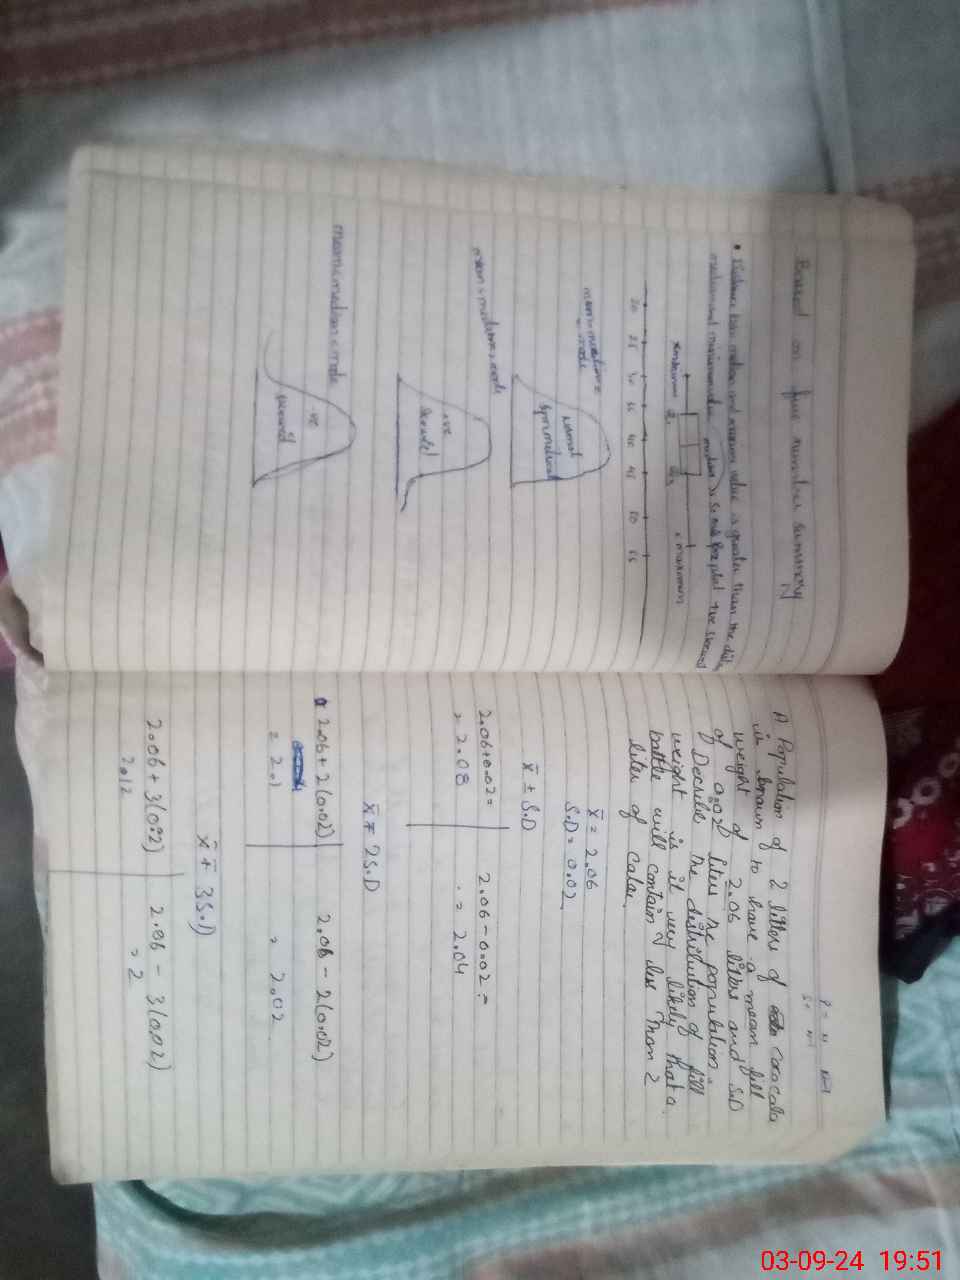 Based on five number summary
• Distance b/w median and maximum value is greater than the
median and minimum value
x minimum
Q1
Q3
x maximum
20 25 30 35 40 45 50 55
mean = median =
mode
normal
symmetrical
mean > median > mode
+ve
skewed
mean < median < mode
-ve
skewed
A Population of 2 litters of coca cala
is known to have a mean fill
weight of 2.06 liters and S.D
of 0.02 liters the population.
Decribe the distribution of fill
weight is it very likely that a
bottle will contain less than 2
liter of
x̄ = 2.06
S.D = 0.02
x̄ ± S.D
2.06+0.02 = 2.06 - 0.02 =
= 2.08 = 2.04
x̄ ∓ 2S.D
2.06 + 2(0.02) 2.06 - 2(0.02)
= 2.1 = 2.02
x̄ ∓ 3S.D
2.06 + 3(0.02) 2.06 - 3(0.02)
2.12 = 2
03-09-24 19:51